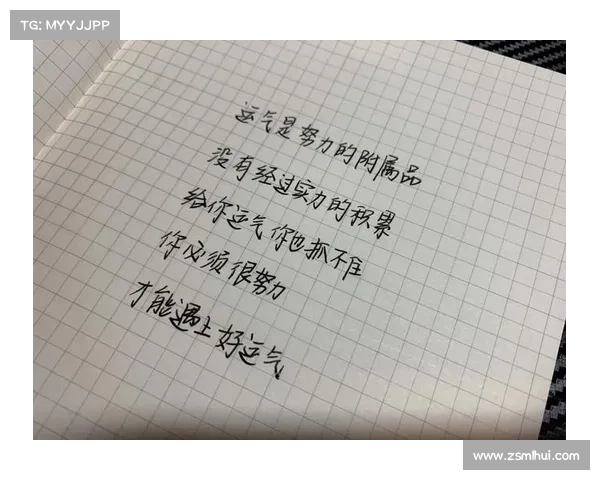 TG: MYYJJPP
运气是努力的附属品
没有经过实力的积累
给你运气你也抓不住
你必须很努力
才能遇上好运气
www.zsmlhui.com